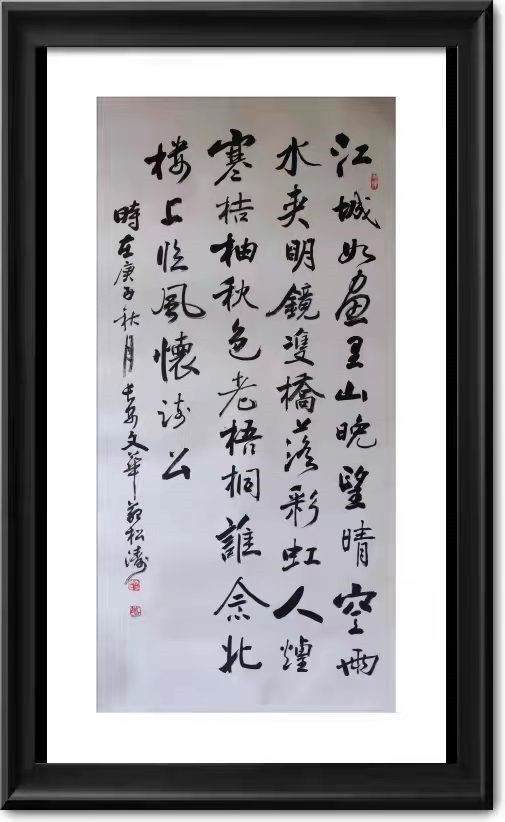 江城如畫里山晚望晴空兩
水夾明鏡隻橋落彩虹人煙
寒桔柚秋色老梧桐誰念北
楼上临風懷謝公
時在庚子秋月長安文華松濤